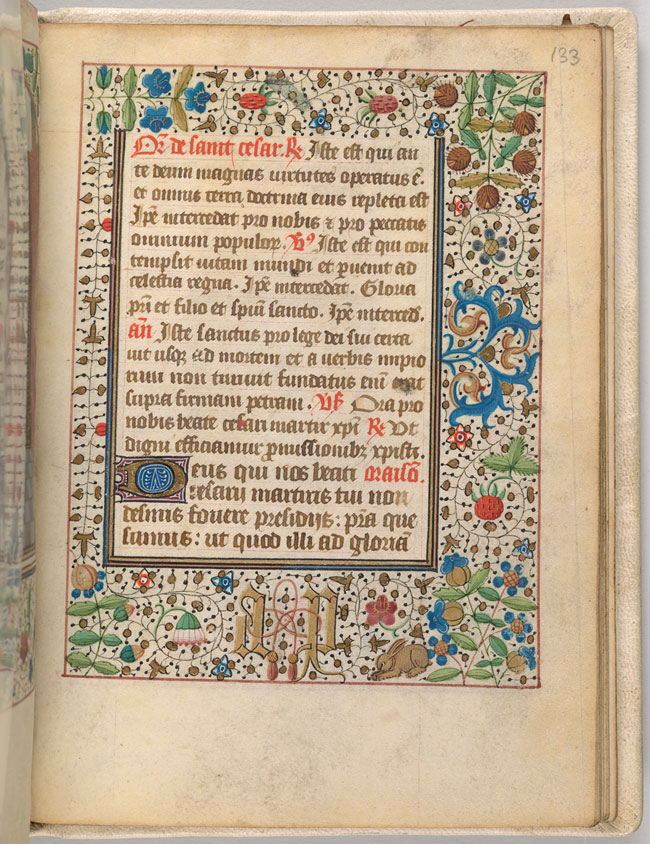 133
Or̃ de sainct cesar. R̸ Iste est qui an
te deum magnas virtutes operatus ẽ.
et omnis terra doctrina eius repleta est
Ip̃e intercedat pro nobis & pro peccatis
omnium populoꝝ. V̸ꝰ Iste est qui con
tempsit vitam mundi et ꝑuenit ad
celestia regna. Ip̃e intercedat. Gloria
pr̃i et filio et sp̃iui sancto. Ip̃e interced.
an̄ Iste sanctus pro lege dei sui certa
uit usqꝫ ad mortem et a verbis impio
rum non timuit fundatus em̃ erat
supra firmam petram. V̸ß Ora pro
nobis beate cesari martir xp̃i R̸ Ut
digni efficiamur ꝓmissionibꝫ xpisti.
Deus qui nos beati oraisõ.
cesarij martiris tui non
desinis fouere presidijs: pr̃a que
sumus: ut quod illi ad gloriã
a p